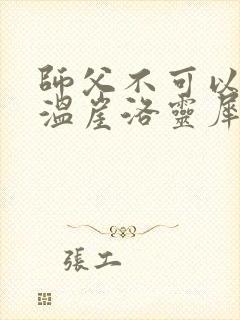 師父不可以
溫崖洛靈犀
張工